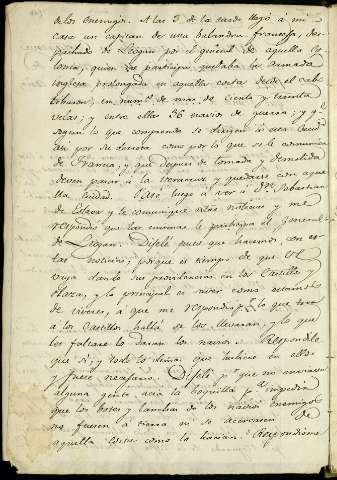 de los enemigos. A las 3 de la tarde llegó á mi
casa un capitan de una balandra francesa, des-
pachado de Leogan por el general de aquella co-
lonia, quien le participa quedaba la armada
inglesa prolongada en aquella costa desde el cabo
Tiburon, en num.º de mas de ciento y treinta
velas; y entre ellas 36 navios de guerra; y q.e
segun lo que comprende se dirigen á esta ciudad
asi por su derrota como por lo que se le comunica
de Francia; y que despues de tomada y demolida
deven pasar á la Veracruz y quedarse con aque-
lla ciudad. Pasé luego á ver á Dn. Sebastian
de Eslava y le comuniqué estas noticias y me
respondió que las mismas le participa el general
de Leogan. Dijele pues que hacemos con es-
tas noticias; porque es tiempo de que V.E.
vaya dando sus providencias en los Castillos y
Plaza, y lo principal es ver como estamos
de viveres, á que me respondió p.r lo que toca
á los Castillos halla se los llevaran, y lo que
les faltare lo daran los navios. Respondile
que si; y todo lo demas que hubiere en ellos
y fuese necesario. Dijele p.r que no enviaba
alguna gente acia la boquilla p.a impedir
que los botes y lanchas de los navios enemigos
no fuesen á tierra ni se acercasen de
aquella costa como lo hacian. Respondióme